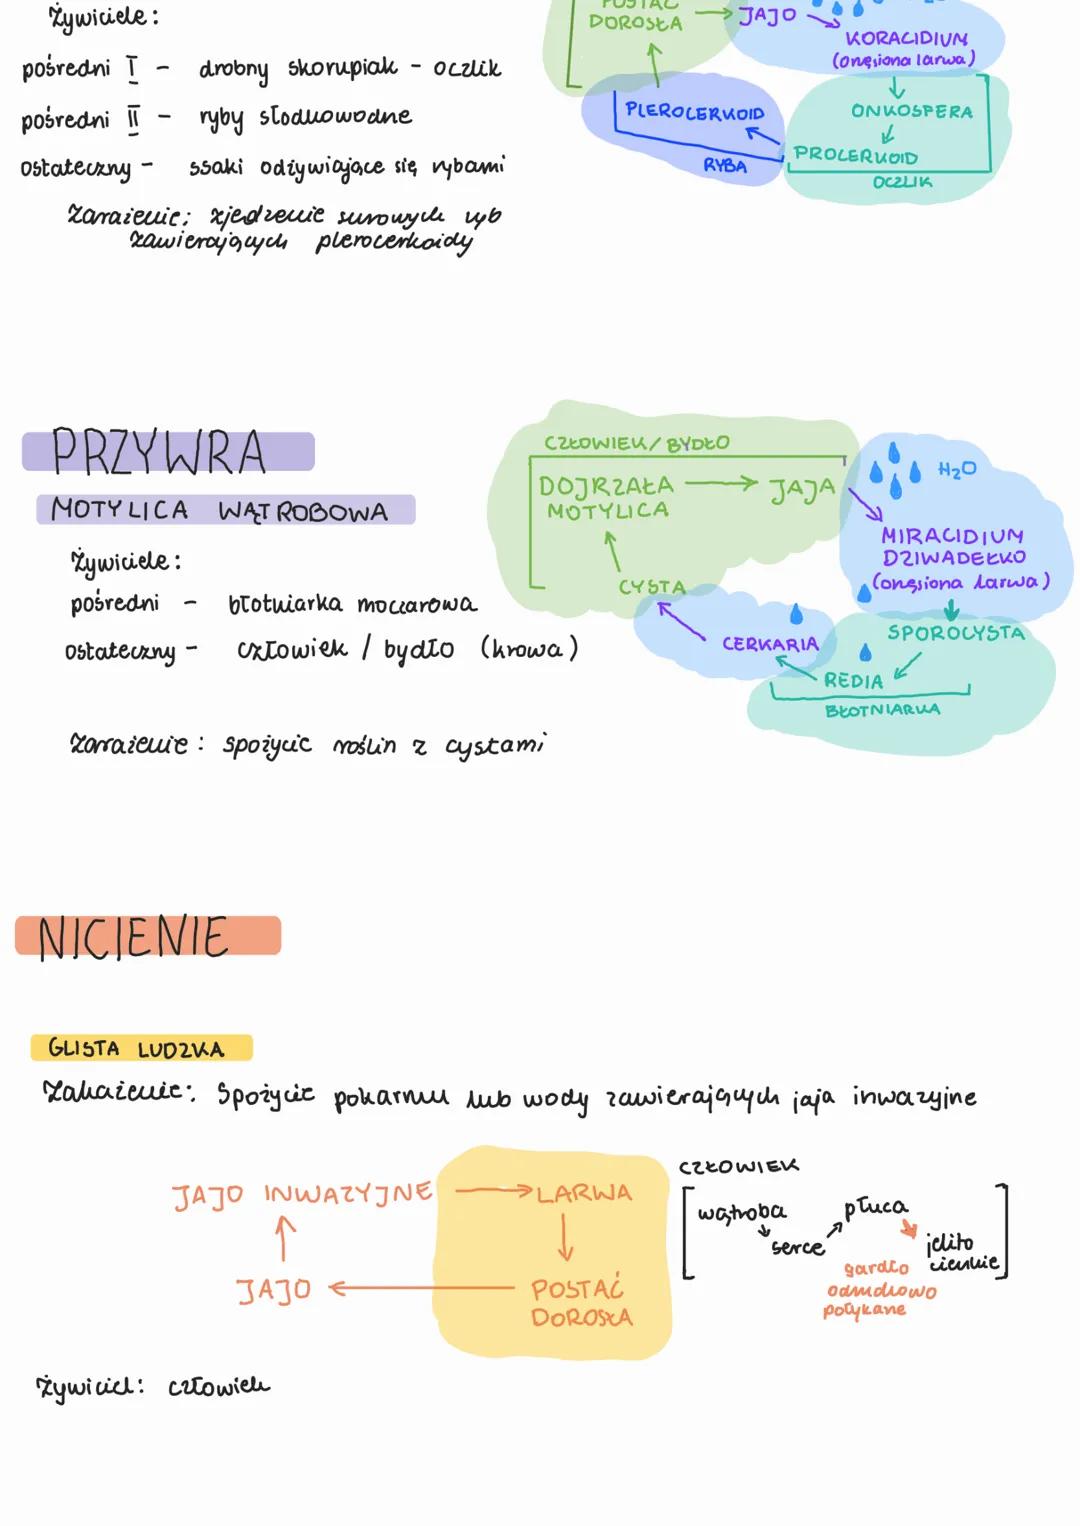 Żywiciele:
pośredni I - drobny skorupiak - oczlik
pośredni II - ryby słodkowodne
ostateczny - ssaki odżywiające się rybami
Zarażenie: zjedzenie surowych ryb
zawierających plerocerkoidy
POSTAĆ
DOROSŁA
JAJO
KORACIDIUM
(orzęsiona larwa)
ONKOSFERA
PROCERKOID
OCZLIK
PLEROCERKOID
RYBA
PRZYWRA
MOTYLICA WĄTROBOWA
Żywiciele:
pośredni - błotniarka moczarowa
ostateczny - człowiek / bydło (krowa)
Zarażenie: spożycie roślin z cystami
CZŁOWIEK/BYDŁO
DOJRZAŁA
MOTYLICA
JAJA
H₂O
MIRACIDIUM
DZIWADEŁKO
(orzęsiona larwa)
SPOROCYSTA
REDIA
BŁOTNIARKA
CERKARIA
CYSTA
NICIENIE
GLISTA LUDZKA
Zakażenie: Spożycie pokarmu lub wody zawierających jaja inwazyjne
JAJO INWAZYJNE
LARWA
POSTAĆ
DOROSŁA
JAJO
CZŁOWIEK
wątroba
serce
płuca
jelito
cienkie
gardło
odruchowo
połykane
Żywiciel: człowiek